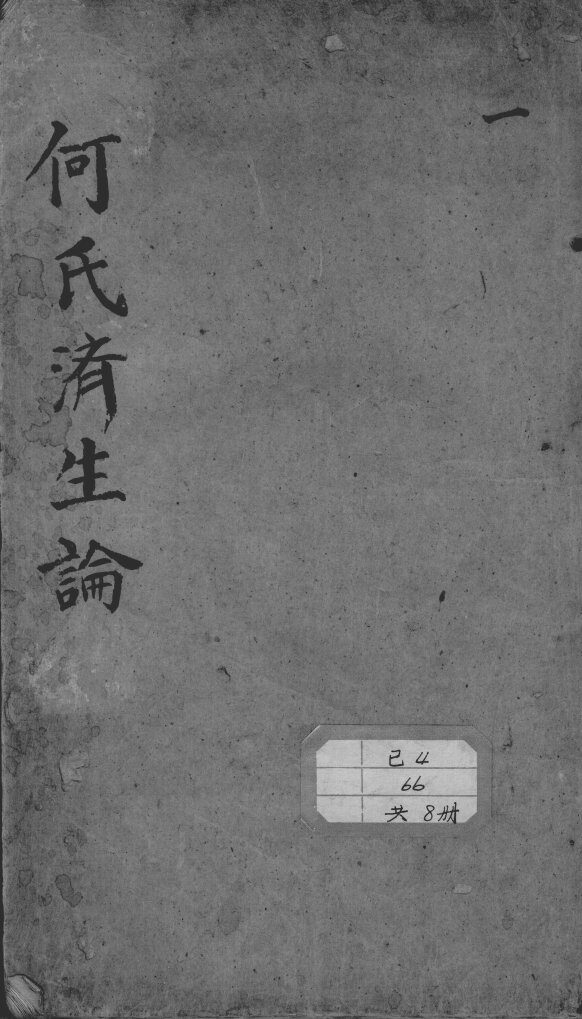 一
何氏済生論
已 4
66
共 8册